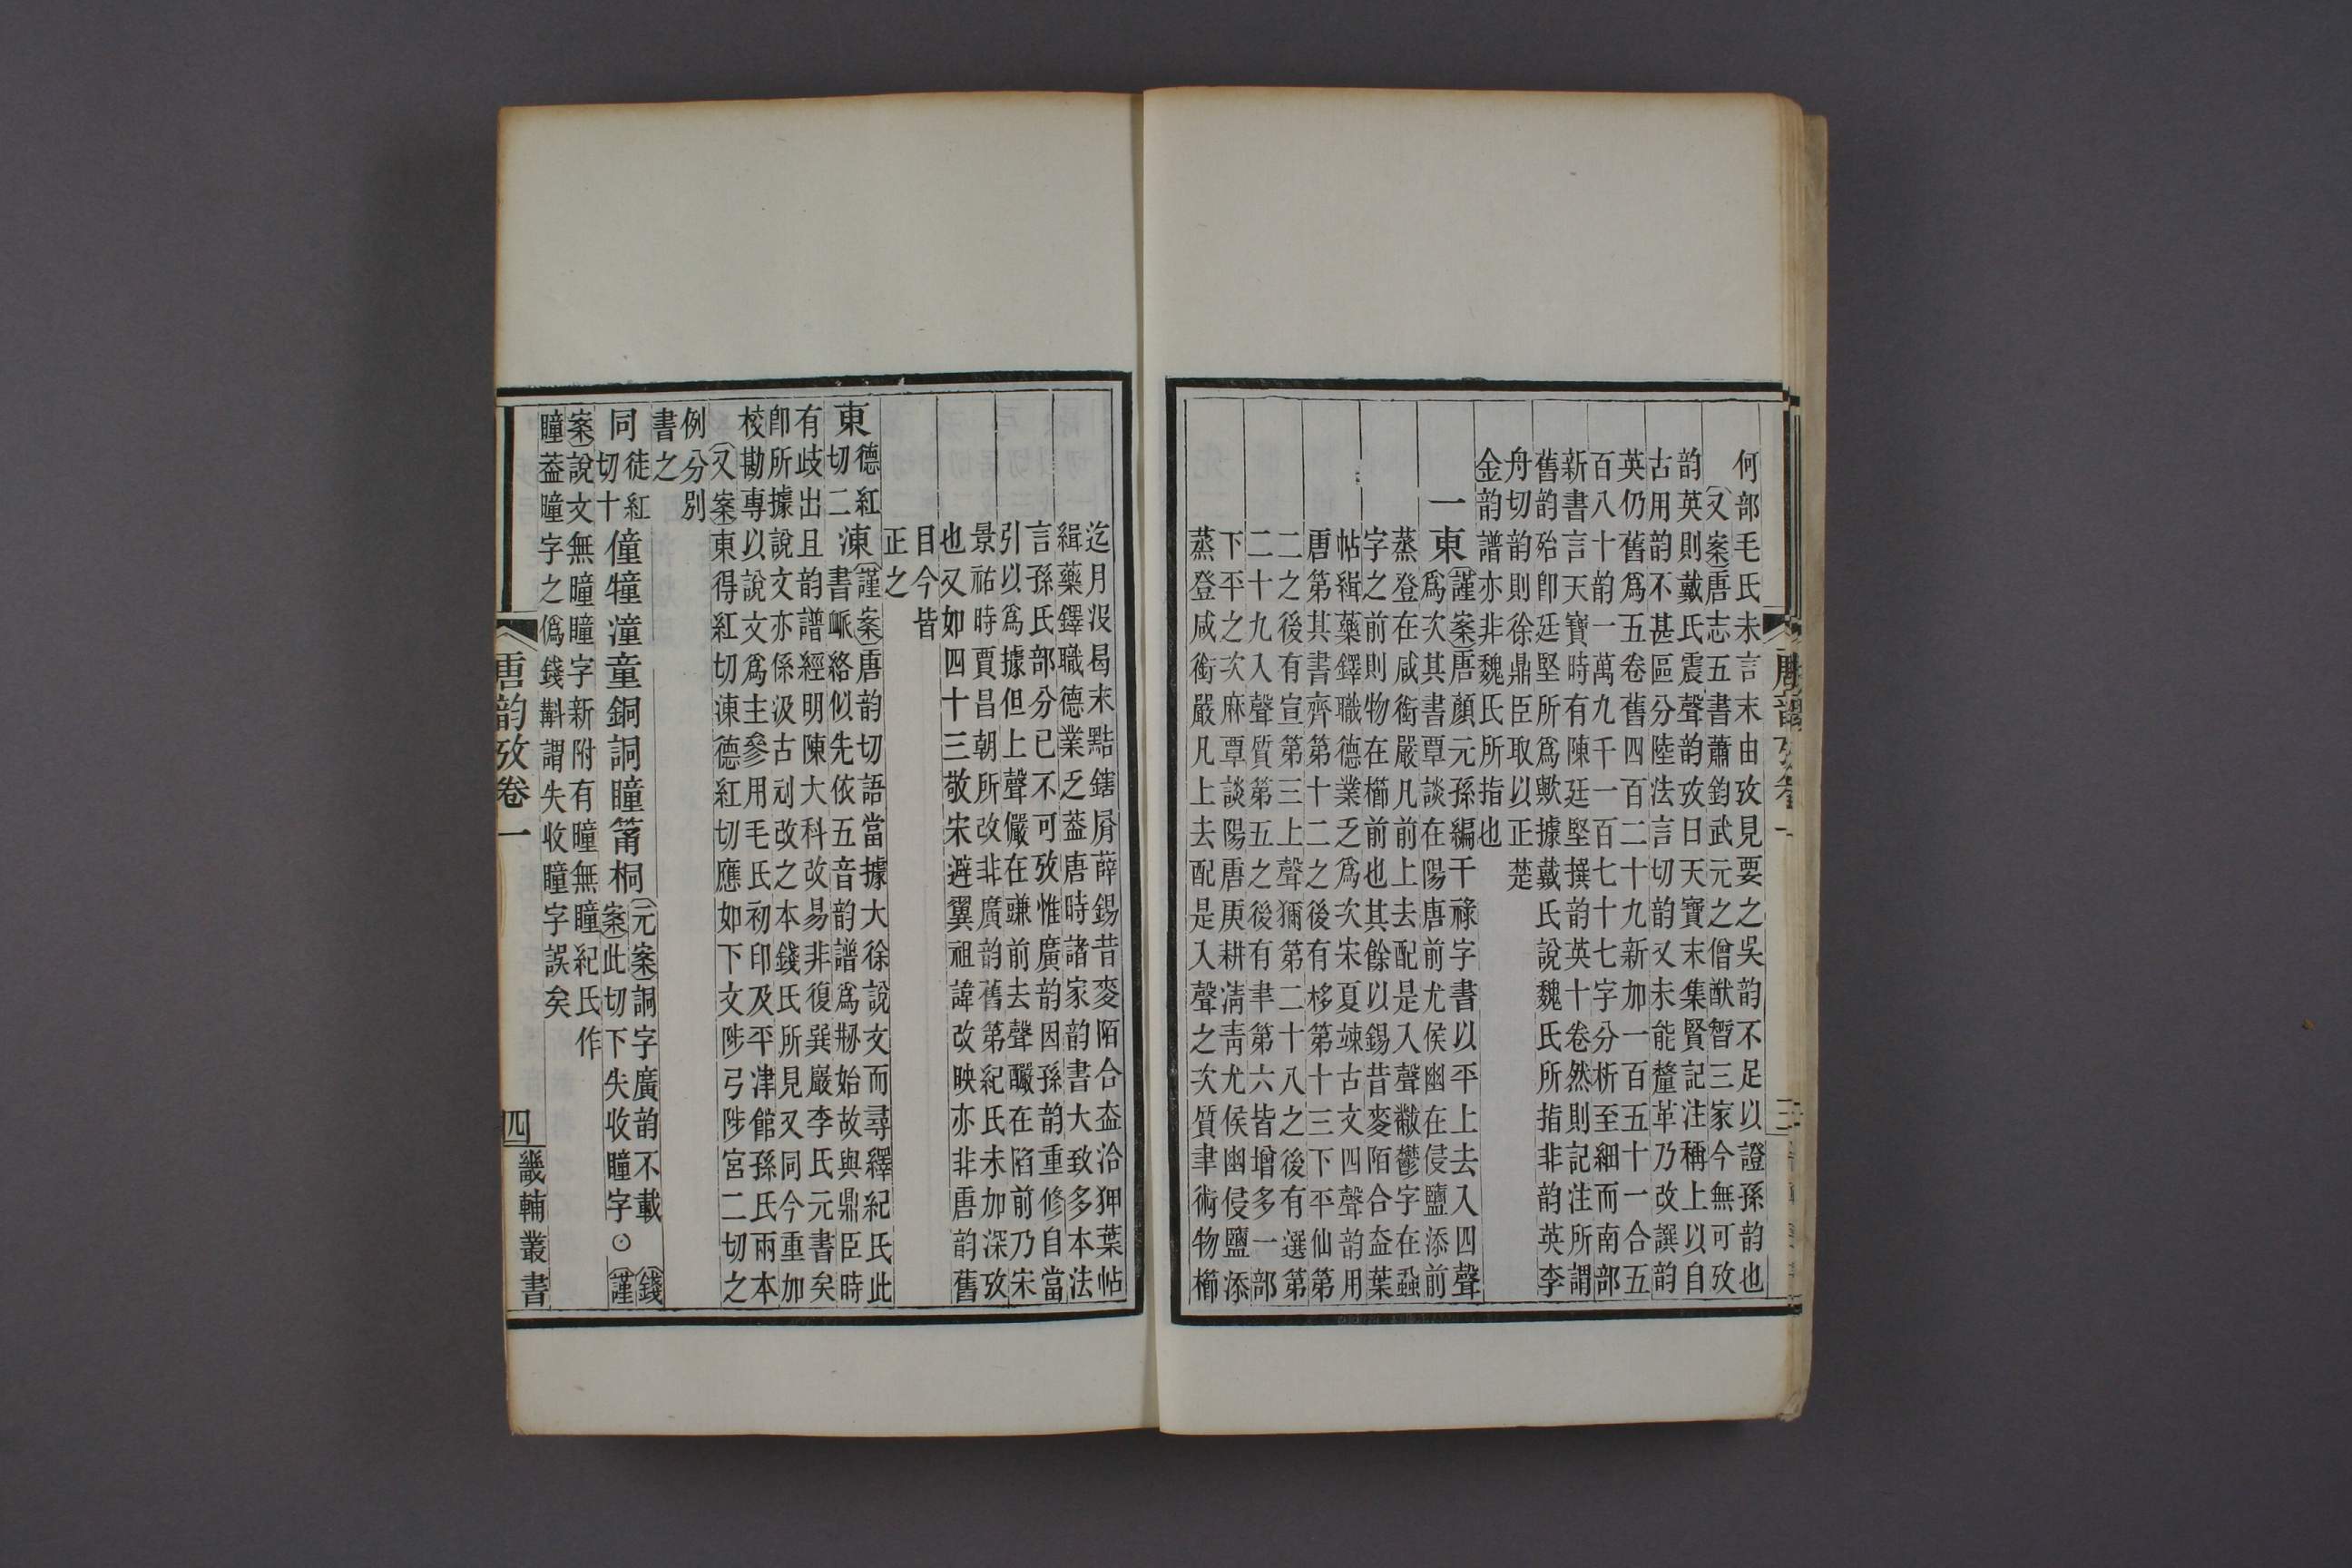 何部毛氏未言末由攷見要之吳韵不足以證孫韵也
又案唐志五書蕭鈞武元之僧猷智三家今無可攷
韵英則戴氏震聲韵攷日天寶末集賢記注稱上以自
古用韵不甚區分陸法言切韵又未能釐革乃改譔韵
英仍舊爲五卷舊四百二十九新加一百五十一合五
百八十韵一萬九千一百七十七字分析至細而南部
新書言天寶時有陳廷堅撰韵英十卷然則記注所謂
舊韵殆卽廷堅所爲歟據戴氏說魏氏所指非韵英李
舟切韵則徐鼎臣取以正楚
金韵譜亦非魏氏所指也
一東
謹案唐顏元孫編干祿字書以平上去入四聲
爲次其書覃談在陽唐前尤侯幽在侵鹽添前
蒸登在咸銜嚴凡前上去配是入聲黻鬱字在蝨
字之前則物在櫛前也其餘以錫昔麥陌合盍葉
帖緝藥鐸職德業乏爲次宋夏竦古文四聲韵用
唐第其書齊第十二之後有栘第十三下平仙第
二之後有宣第三上聲獮第二十八之後有選第
二十九入聲質第五之後有聿第六皆增多一部
下平之次麻覃談陽唐庚耕凊靑尤侯幽侵鹽添
蒸登咸銜嚴凡上去配是入聲之次質聿術物櫛
唐韵攷卷一
三
迄月沒曷末黠鎋屑薛錫昔麥陌合盍洽狎葉帖
緝藥鐸職德業乏葢唐時諸家韵書大致多本法
言孫氏部分已不可攷惟廣韵因孫韵重修自當
引以爲據但上聲儼在豏前去聲釅在陷前乃宋
景祐時賈昌朝所改非廣韵舊第紀氏未加深攷
也又如四十三敬宋避翼祖諱改映亦非唐韵舊
目今皆
正之
東
德紅
切二
涷
謹案唐韵切語當據大徐說文而尋繹紀氏此
書㡿絡似先依五音韵譜爲刱始故與鼎臣時
有歧出且韵譜經明陳大科改易非復巽巖李氏元書矣
卽所據說文亦係汲古刓改之本錢氏所見又同今重加
校勘專以說文爲主參用毛氏初印及平津館孫氏兩本
又案東得紅切涷德紅切應如下文陟弓陟宮二切之
例分別
書之
同
徒紅
切十
僮犝潼童銅詷瞳筩桐
元案詷字廣韵不載
錢
案此切下失收曈字
謹
案說文無瞳曈字新附有曈無瞳紀氏作
瞳葢曈字之僞錢斠謂失收曈字誤矣
唐韵攷卷一
四
畿輔叢書